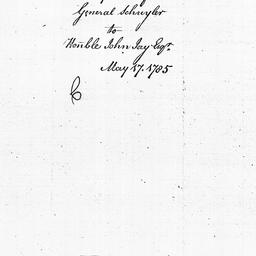 General Schuyler
to
Honble John Jay Esqr.
May 17. 1785
C